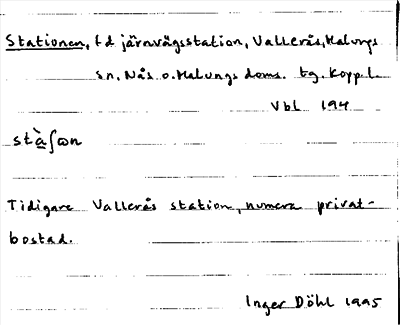 Stationen, f d järnvägsstation, Vallerås, Malungs
sn, Nås o. Malungs doms. tg. Koppl.
Vbl 194
stàʃɷn
Tidigare Vallerås station, numera privat-
bostad.
Inger Döhl 1995